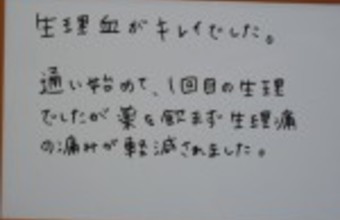 生理血がキレイでした。
通い始めて、1回目の生理
でしたが薬を飲まず生理痛
の痛みが軽減されました。